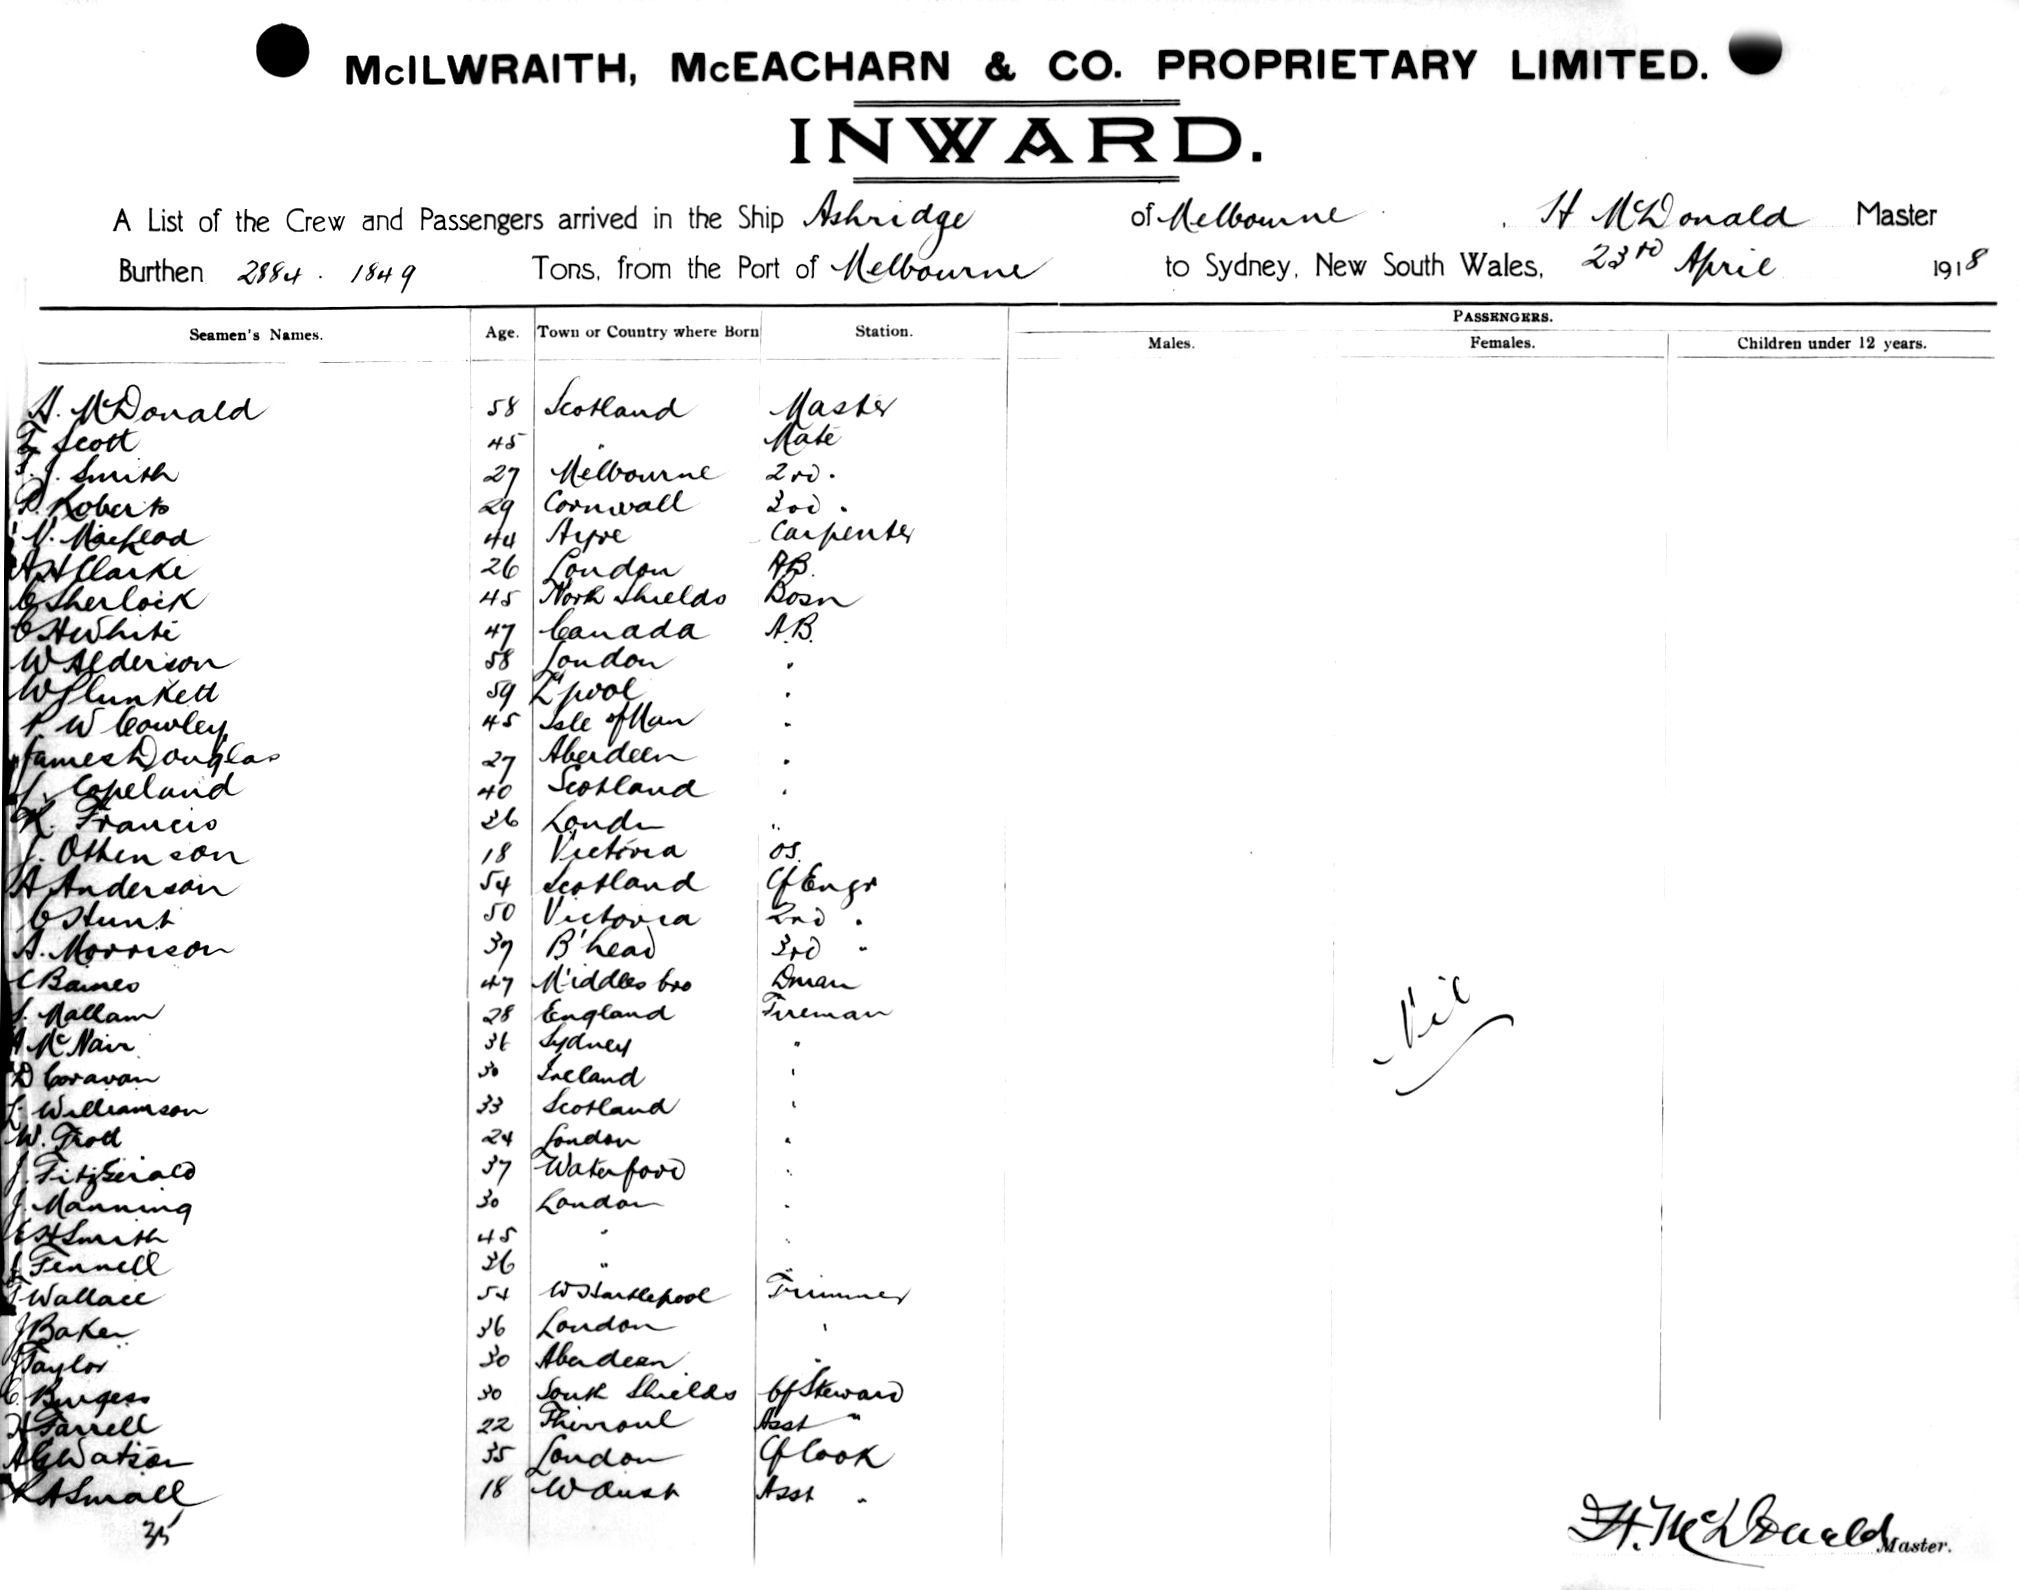 McILWRAITH, McEACHARN & CO. PROPRIETARY LIMITED.
INWARD.
A List of the Crew and Passengers arrived in the Ship Ashridge of Melbourne, H McDonald Master
Burthen 2884. 1849 Tons, from the Port of Melbourne to Sydney, New South Wales, 23rd April 1918
PASSENGERS.
Seamen's Names. Age. Town or Country where Born Station. Males. Females. Children under 12 years.
H. McDonald 58 Scotland Master
Scott 45 " Mate
J. Smith 27 Melbourne 2nd "
Roberts 29 Cornwall 3rd "
N. MacLeod 44 Ayre Carpenter
A H Clarke 26 London AB.
C Sherlock 45 North Shields Bosn
C H White 47 Canada A.B.
W Alderson 58 London "
W Plunkett 59 L'pool "
P. W Cowley 45 Isle of Man "
James Douglas 27 Aberdeen "
J. Copeland 40 Scotland "
K. Francis 36 Londn "
J. Ottenson 18 Victoria OS.
A Anderson 54 Scotland Cf Engr
C Hunt 50 Victoria 2nd "
A. Morrison 37 B'head 3rd "
C Baines 47 Middlesbro Dman
Mallam 28 England Fireman
McNair 36 Sydney "
D Coravan 30 Ireland "
L. Williamson 33 Scotland "
W. Trott 24 London "
J. FitzGerald 37 Waterford "
J. Manning 30 London "
E H Smith 45 " "
Fennell 36 " "
Wallace 54 W Hartlepool Trimmer
J Baker 36 London "
J Taylor 30 Aberdeen "
C. Burgess 30 South Shields Cf Steward
H Farrell 22 Thirroul Asst "
A G Watson 35 London Cf Cook
A Small 18 W Aust Asst "
35
Nil
H. McDonald Master.